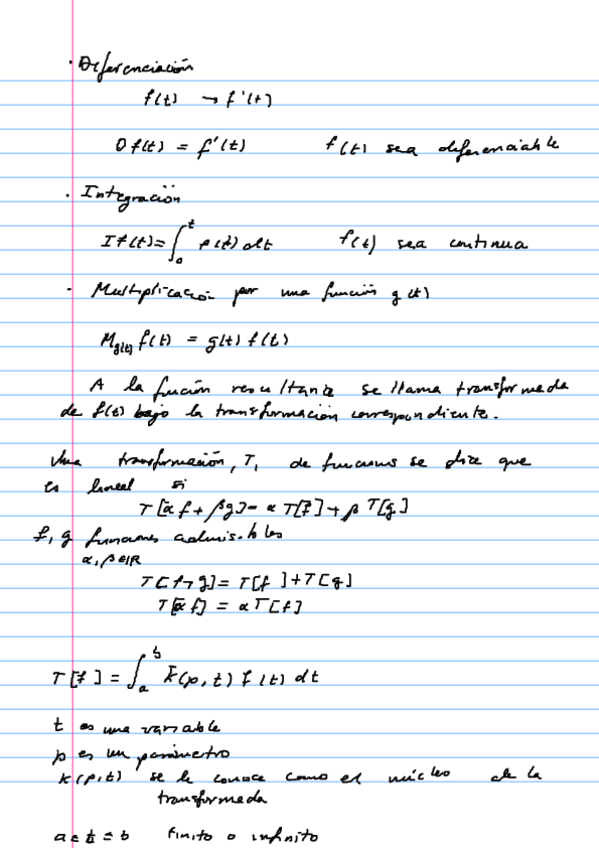 · Diferenciación
f(t) → f'(t)
D f(t) = f'(t) f(t) sea diferenciable
· Integración
I f(t) = ∫₀ᵗ f(t) dt f(t) sea continua
- Multiplicación por una función g(t)
M_g(t) f(t) = g(t) f(t)
A la función resultante se llama transformada
de f(t) bajo la transformación correspondiente.
Una transformación, T, de funciones se dice que
es lineal si
T[αf + βg] = α T[f] + β T[g]
f, g funciones admisibles
α, β ∈ ℝ
T[f + g] = T[f] + T[g]
T[αf] = α T[f]
T[f] = ∫ₐᵇ k(p, t) f(t) dt
t es una variable
p es un parámetro
k(p, t) se le conoce como el núcleo de la
transformada
a ≤ t ≤ b finito o infinito